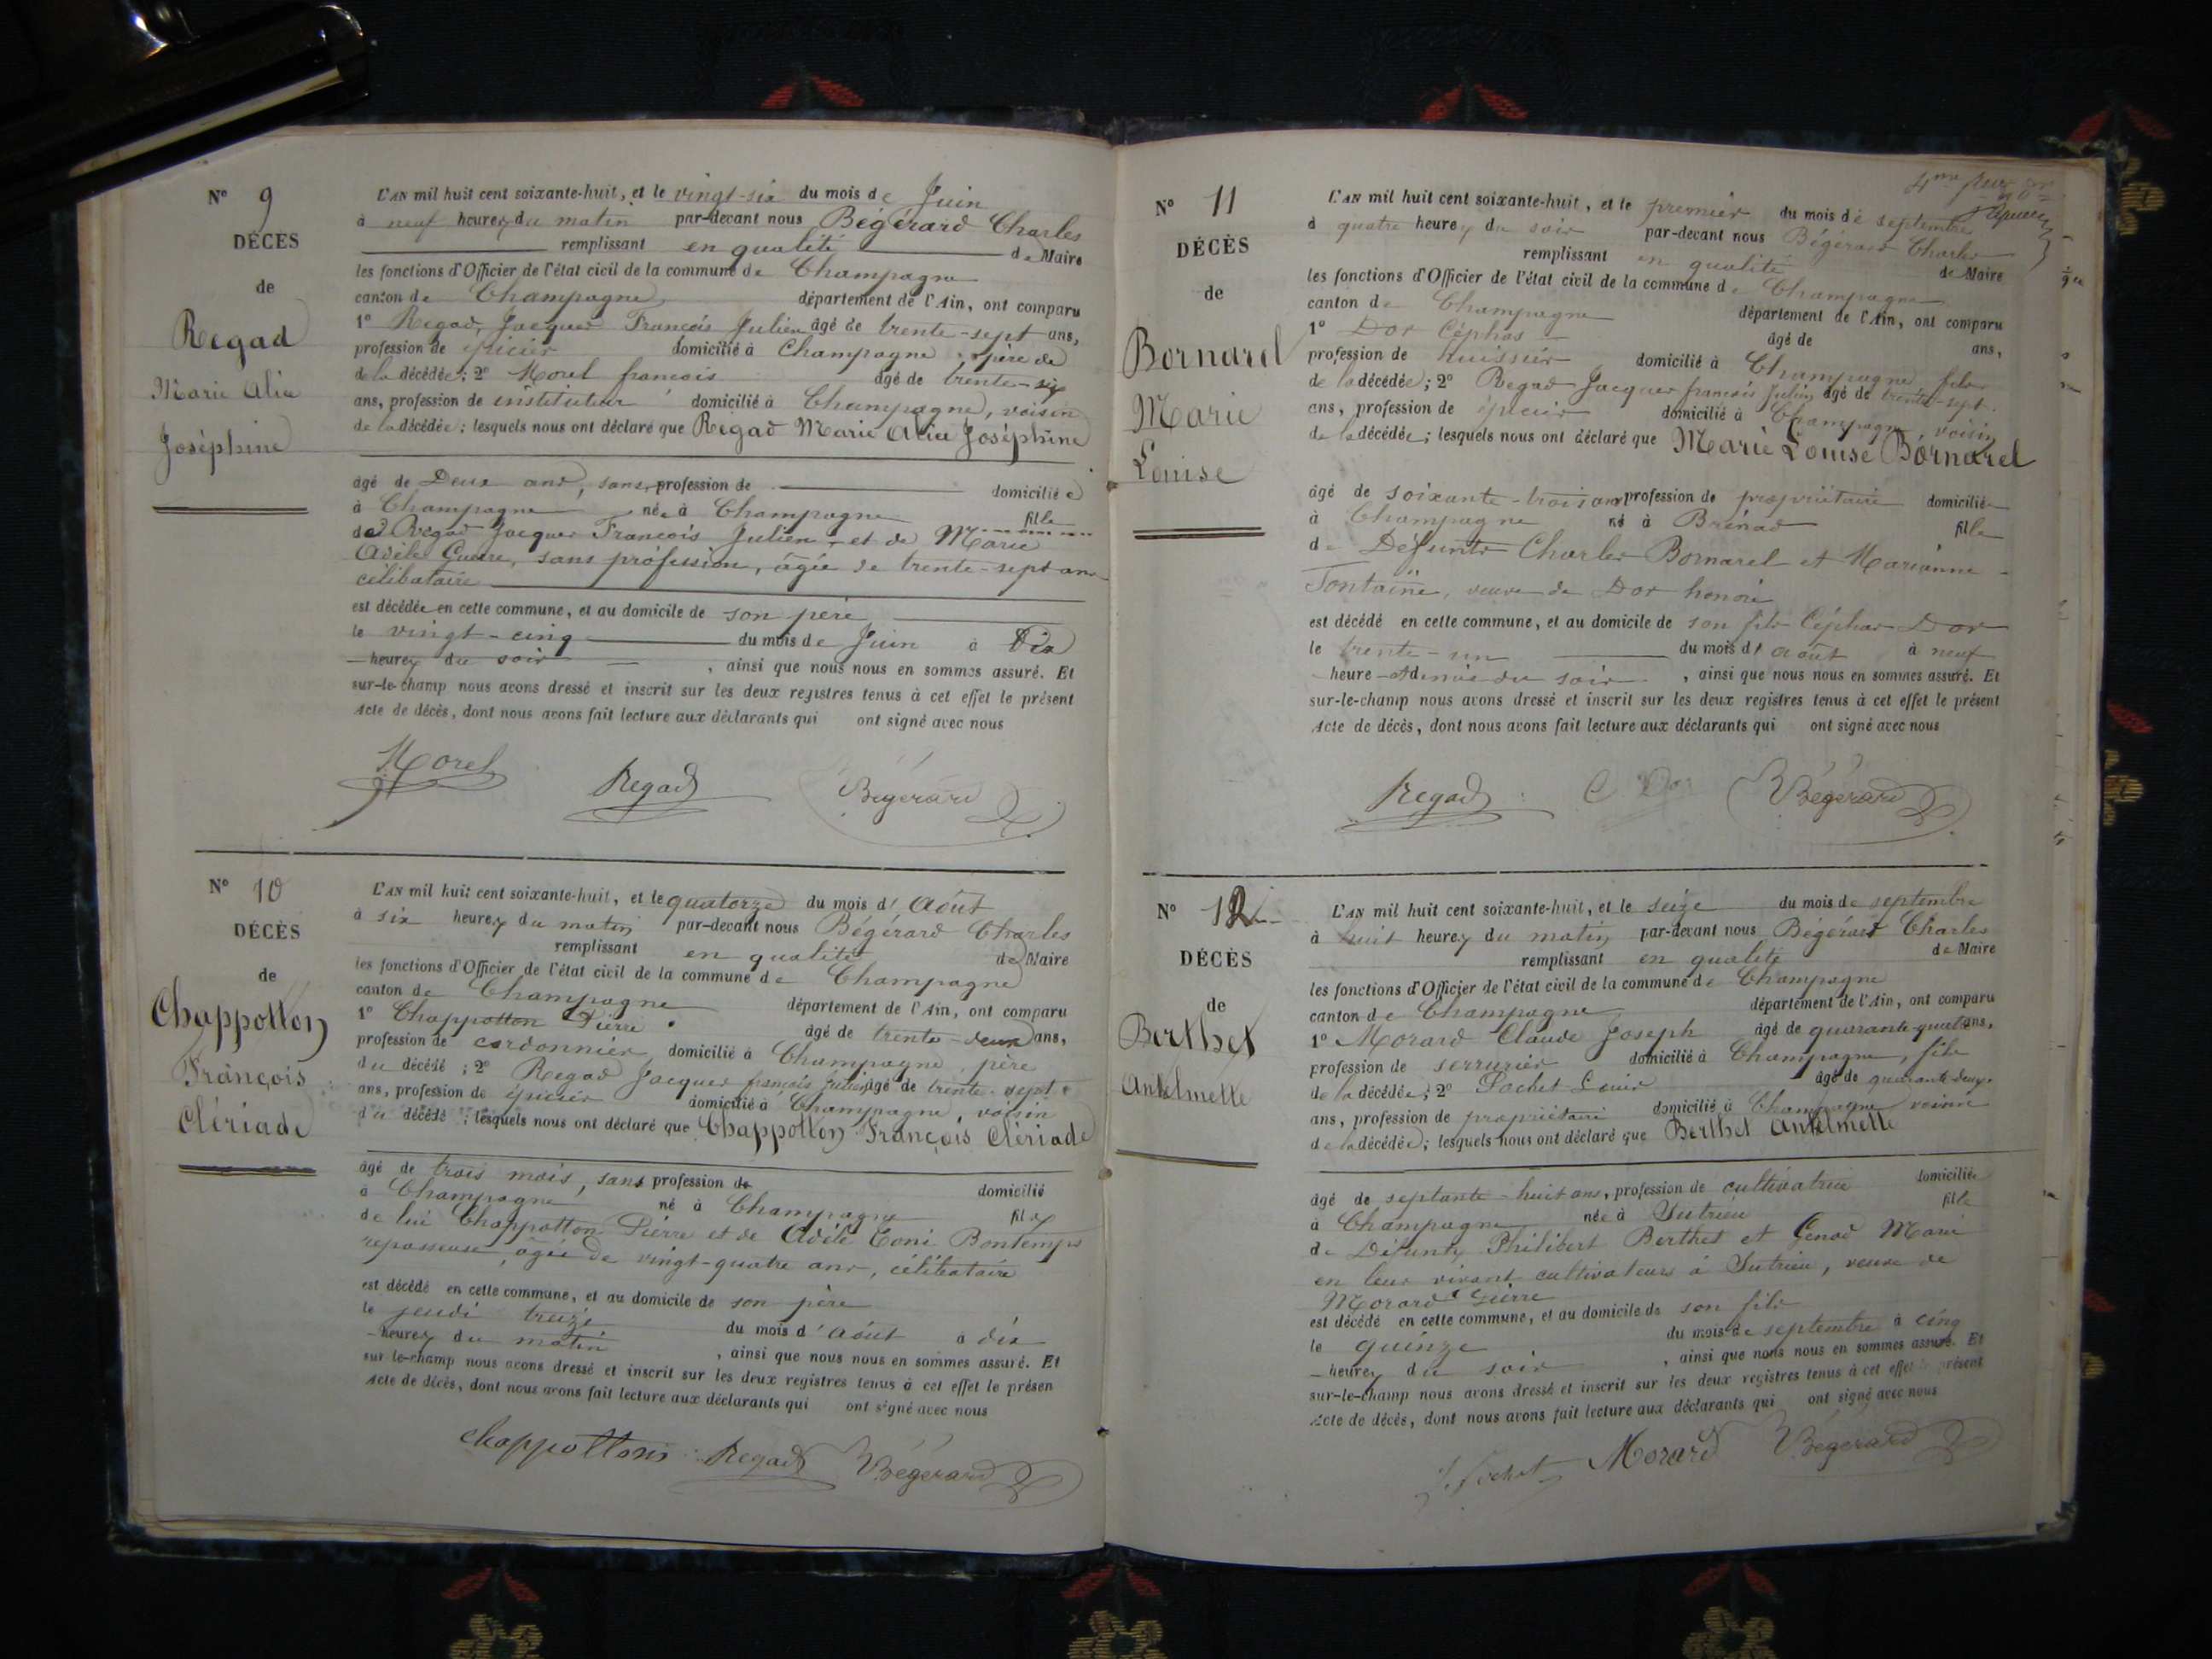 N° 9
DÉCÈS
de
Regad
Marie Alix
Joséphine
L'AN mil huit cent soixante-huit, et le vingt-six du mois de Juin
à neuf heures du matin par-devant nous Bégérard Charles
remplissant en qualité de Maire
les fonctions d'Officier de l'état civil de la commune de Champagne
canton de Champagne département de l'Ain, ont comparu
1° Regad, Jacques François Julien âgé de trente-sept ans,
profession de épicier domicilié à Champagne, père de
de la décédée; 2° Morel françois âgé de trente-six
ans, profession de instituteur domicilié à Champagne, voisin
de la décédée; lesquels nous ont déclaré que Regad Marie Joséphine
âgé de Deux ans, sans profession de domiciliée
à Champagne née à Champagne fille
de Regad Jacques François Julien et de Marie
Adèle, sans profession, âgée de trente-sept ans
célibataire
est décédée en cette commune, et au domicile de son père
le vingt-cinq du mois de Juin à Dix
heures du soir, ainsi que nous nous en sommes assuré. Et
sur-le-champ nous avons dressé et inscrit sur les deux registres tenus à cet effet le présent
Acte de décès, dont nous avons fait lecture aux déclarants qui ont signé avec nous
Morel Regad Bégérard
N° 10
DÉCÈS
de
Chappotton
François
Clériade
L'AN mil huit cent soixante-huit, et le quatorze du mois d'Août
à six heures du matin par-devant nous Bégérard Charles
remplissant en qualité de Maire
les fonctions d'Officier de l'état civil de la commune de Champagne
canton de Champagne département de l'Ain, ont comparu
1° Chappotton Pierre âgé de trente-deux ans,
profession de cordonnier domicilié à Champagne, père
du décédé; 2° Regad Jacques françois julien âgé de trente-sept
ans, profession de épicier domicilié à Champagne, voisin
du décédé; lesquels nous ont déclaré que Chappotton François Clériade
âgé de trois mois, sans profession de domicilié
à Champagne né à Champagne fils
de lui Chappotton Pierre et de Adèle Bontemps
repasseuse, âgée de vingt-quatre ans, célibataire
est décédé en cette commune, et au domicile de son père
le jeudi treize du mois d'Août à dix
heures du matin, ainsi que nous nous en sommes assuré. Et
sur-le-champ nous avons dressé et inscrit sur les deux registres tenus à cet effet le présen
Acte de décès, dont nous avons fait lecture aux déclarants qui ont signé avec nous
Chappotton Regad Bégérard
N° 11
DÉCÈS
de
Bornarel
Marie
Louise
L'AN mil huit cent soixante-huit, et le premier du mois de septembre
à quatre heures du soir par-devant nous Bégérard Charles
remplissant en qualité de Maire
les fonctions d'Officier de l'état civil de la commune de Champagne
canton de Champagne département de l'Ain, ont comparu
1° Dor Céphas âgé de ans,
profession de huissier domicilié à Champagne, fils
de la décédée; 2° Regad Jacques françois Julien âgé de trente-sept
ans, profession de épicier domicilié à Champagne, voisin
de la décédée; lesquels nous ont déclaré que Marie Louise Bornarel
âgé de soixante-trois ans profession de propriétaire domiciliée
à Champagne né à Brénaz fille
de Défunts Charles Bornarel et Marianne
Fontaine, veuve de Dor honoré
est décédé en cette commune, et au domicile de son fils Céphas Dor
le trente-un du mois d'août à neuf
heure et demie du soir, ainsi que nous nous en sommes assuré. Et
sur-le-champ nous avons dressé et inscrit sur les deux registres tenus à cet effet le présent
Acte de décès, dont nous avons fait lecture aux déclarants qui ont signé avec nous
Regad C Dor Bégérard
N° 12
DÉCÈS
de
Berthet
Antelmette
L'AN mil huit cent soixante-huit, et le seize du mois de septembre
à huit heures du matin par-devant nous Bégérard Charles
remplissant en qualité de Maire
les fonctions d'Officier de l'état civil de la commune de Champagne
canton de Champagne département de l'Ain, ont comparu
1° Morard Claude Joseph âgé de quarante-quatre ans,
profession de serrurier domicilié à Champagne, fils
de la décédée; 2° Pochet Louis âgé de quarante-deux
ans, profession de propriétaire domicilié à Champagne voisin
de la décédée; lesquels nous ont déclaré que Berthet Antelmette
âgé de septante-huit ans, profession de cultivatrice domiciliée
à Champagne née à Sutrieu fille
de Défunts Philibert Berthet et Genod Marie
en leur vivant cultivateurs à Sutrieu, veuve de
Morard Pierre
est décédé en cette commune, et au domicile de son fils
le quinze du mois de septembre à cinq
heures du soir, ainsi que nous nous en sommes assuré. Et
sur-le-champ nous avons dressé et inscrit sur les deux registres tenus à cet effet le présent
Acte de décès, dont nous avons fait lecture aux déclarants qui ont signé avec nous
Pochet Morard Bégérard